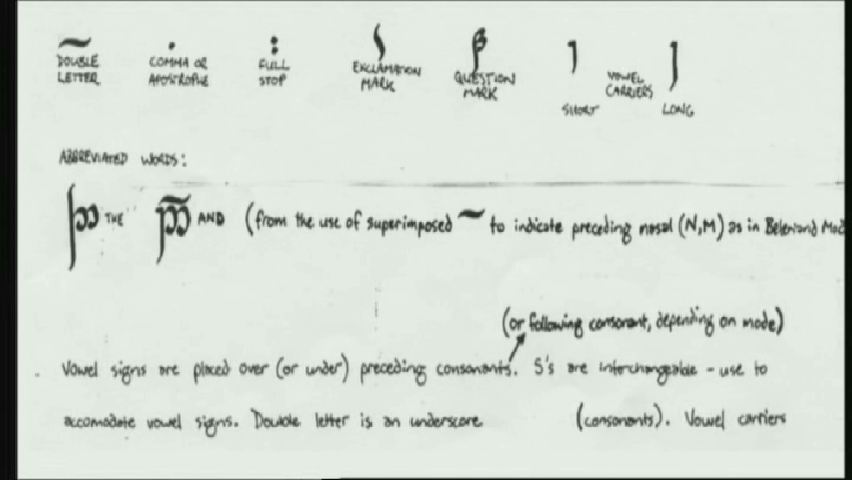 DOUBLE LETTER
COMMA OR APOSTROPHE
FULL STOP
EXCLAMATION MARK
QUESTION MARK
SHORT
VOWEL CARRIERS
LONG
ABBREVIATED WORDS:
THE AND (from the use of superimposed ~ to indicate preceding nasal (N,M) as in Beleriand Mod
(or following consonant, depending on mode)
Vowel signs are placed over (or under) preceding consonants. S's are interchangeable - use to
accomodate vowel signs. Double letter is an underscore (consonants). Vowel carriers